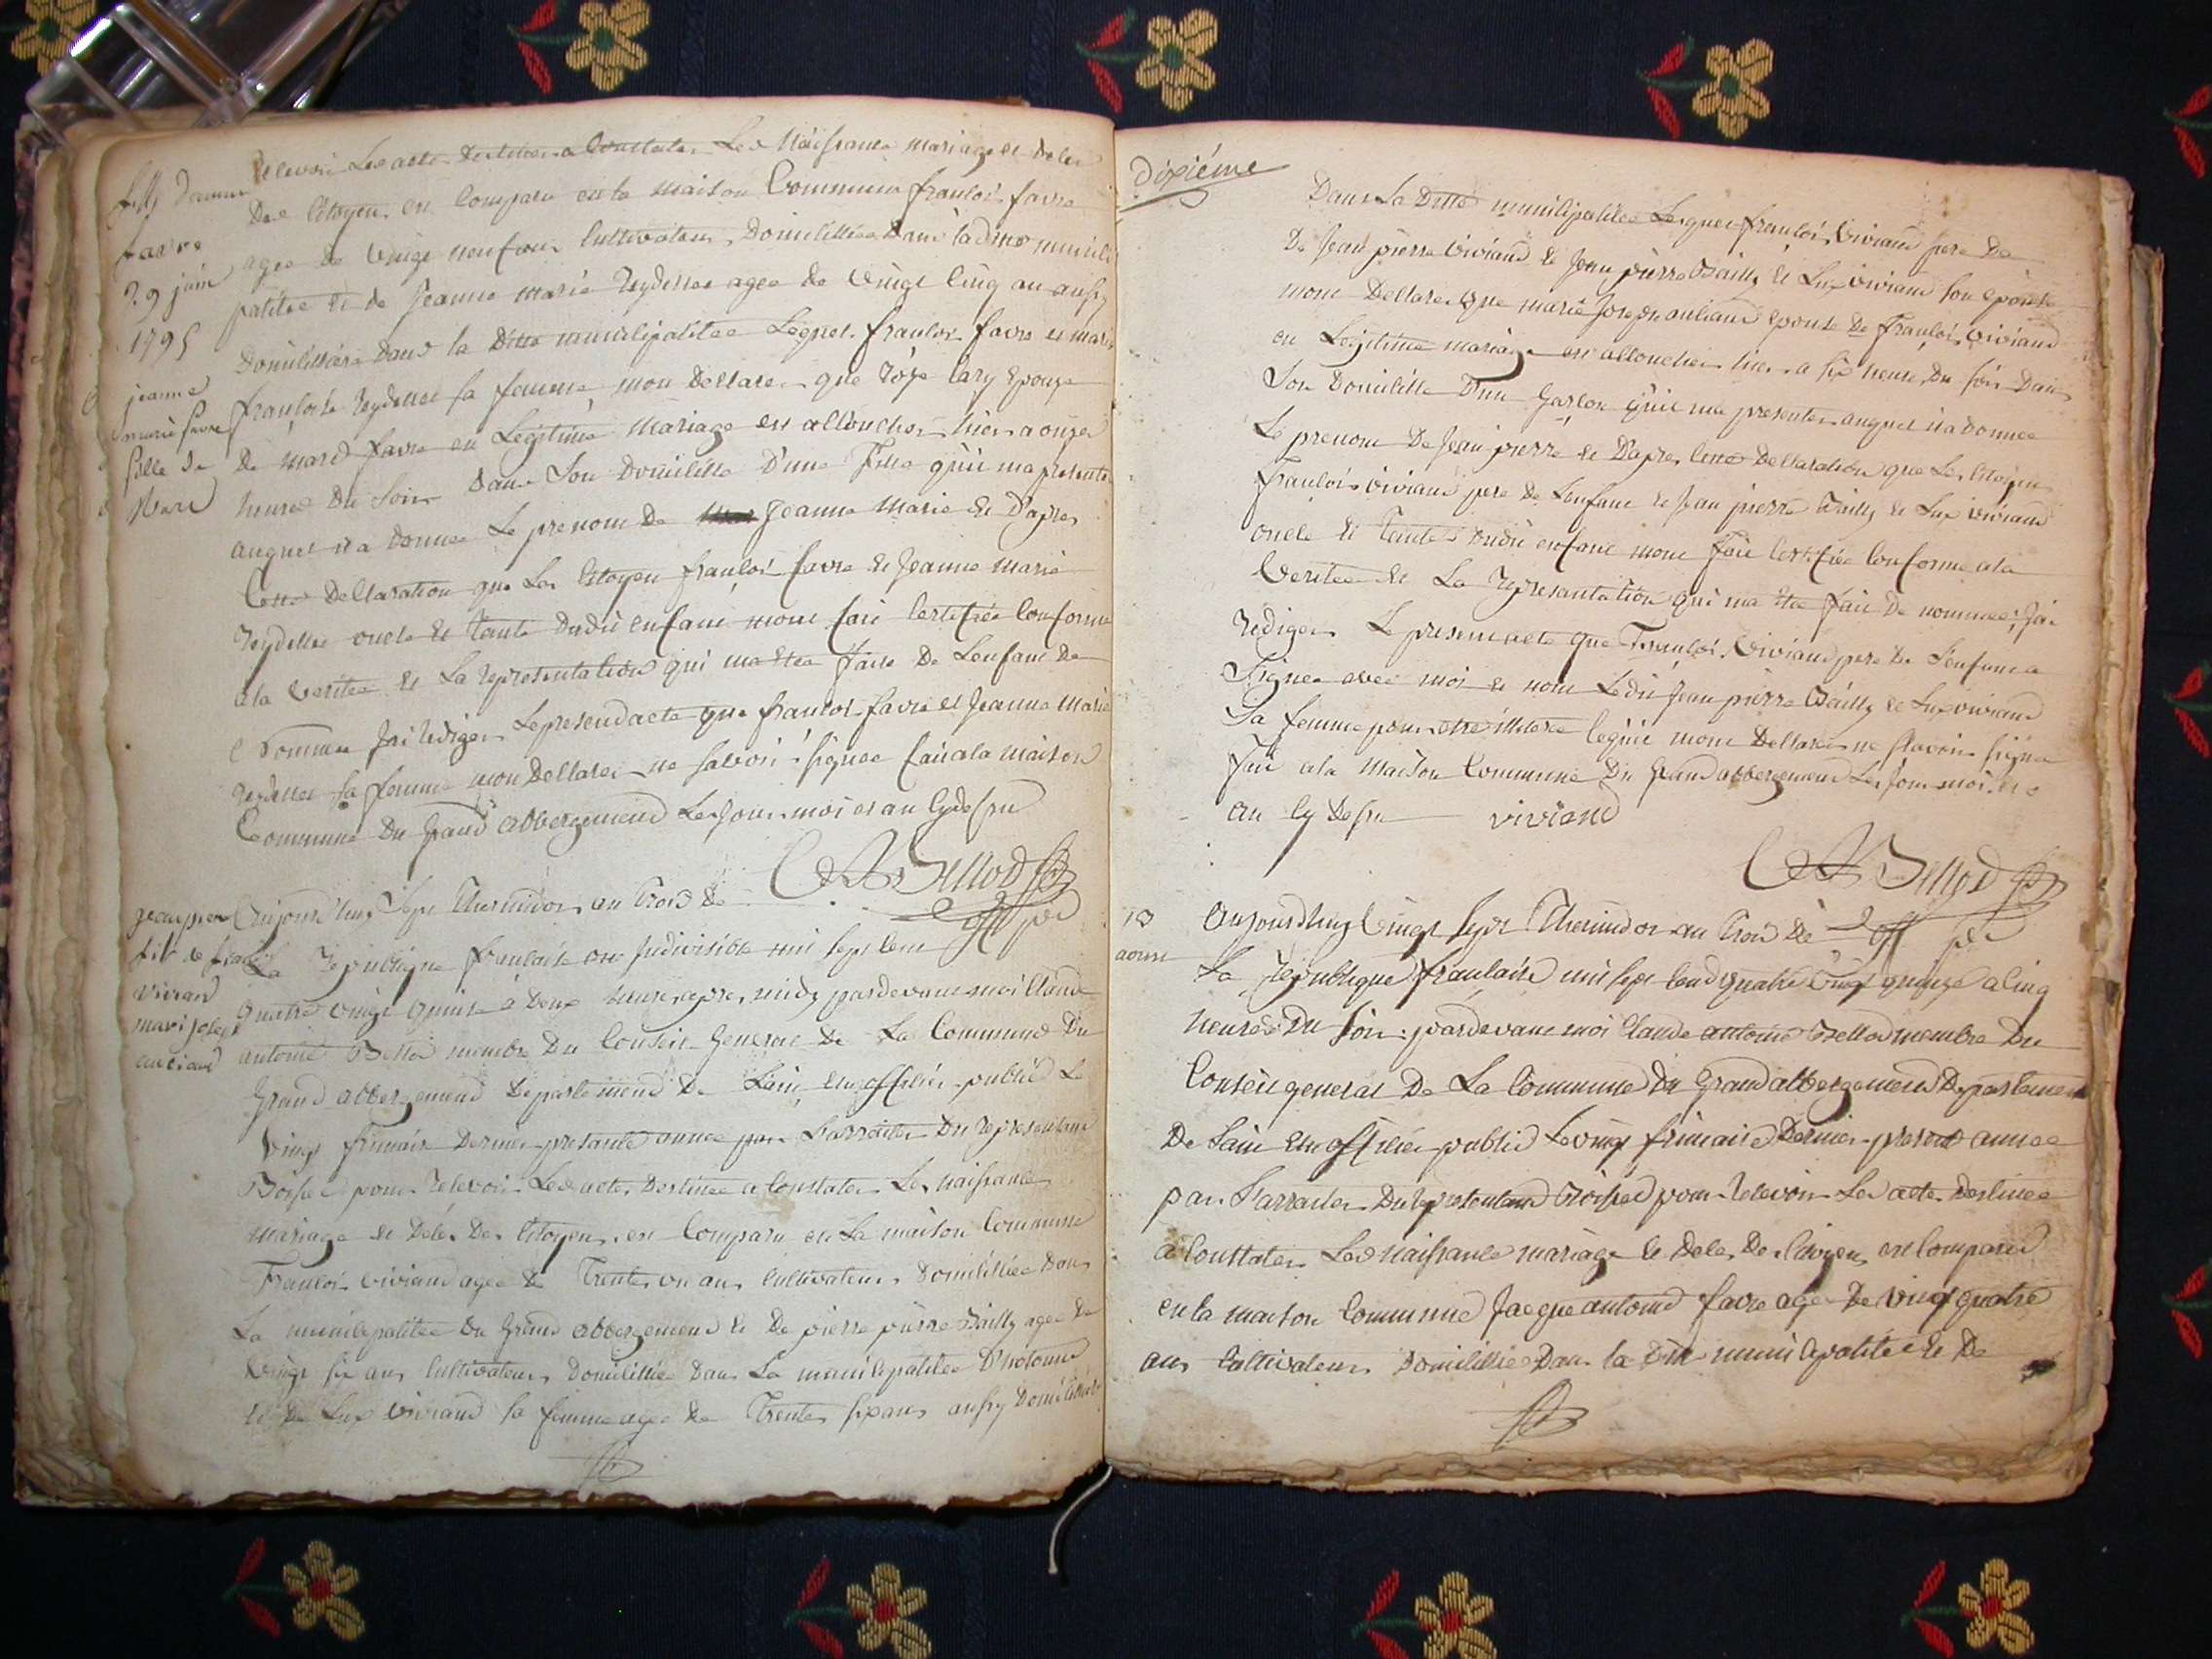 recevoir Les actes destinee a Constater Les Naissance mariage et deles
Des Citoyens est Comparu en la maison Commune francois favre
agee de vingt neuf ans Cultivateur Domicilliee Dans la ditte munici
palitee et de Jeanne marie Reydellet agee de vingt cinq an aussy
Domicilliée Dans la Ditte municipalitee Lequel francois favre et marie
francoise Reydellet sa femme, mon Declarer que Épouze
De marc favre en Legitime Mariage est accoucher hier a onze
heures Du Soir Dans Son Domicille D'une Fille qu'il ma presenter
auquel il a Donnee Le prenom de Jeanne Marie et D'apres
Cette Declaration que Les Citoyen francois favre et Jeanne marie
Reydellet oncle et tante Dudit enfant mont fait Certifiée Conforme
ala veritee et La representation qui ma Etee faite De Lenfant De
nommee Jai Rediger Le presend acte que francois favre et Jeanne Marie
Reydellet sa femme mon Declarer ne Savoir signee fait a la maison
Commune Du Grand abbergement Les Jour moi et an Cy dessu
CA Bellod
off pu
fille
favre
29 juin
1795
jeanne
marie favre
fille de
Marc
jeanpierre
fils de francois
viviand
mari joseph
anciand
Aujourd'huy Sept Thermidor an trois de
La Republique francaise une Indivisible mil sept Cent
quatre vingt quinze a Deux heure apres midy pardevant moi Claude
antoine Bellod membre Du Conseil General De La Commune Du
Grand abbergement Departement De Lain, Elu officier public Le
vingt frimaire Dernier presante annee par Larraitee Du representant
Boisset pour Recevoir Les actes Destinee a Constater Les naissance
mariage et Deles Des Citoyens est Comparu en La maison Commune
Francois viviand agee de trente un ans Cultivateur Domicilliee Dans
La municipalitee du Grand abbergement et De pierre pierre Bailly agee de
vingt six ans Cultivateur Domicilliee Dans La municipalitee D'hotonne
et De Lux viviand sa femme agee de Trente six ans aussy Domicilliee
Dixiéme
Dans La Ditte municipalitee Lequel francois viviand pere De
De Jean pierre viviand et Jean pierre Bailly et Lux viviand son epouse
mont Declarer que marie Joseph anciand epouse De Francois viviand
en Legitime mariage est accoucher hier a six heure Du soir Dans
Son Domicille D'un Garcon qu'il ma presenter auquel il a Donnee
Le prenom De Jean pierre et D'apres Cette Declaration que Les Citoyen
Francois viviand pere De Lenfant et Jean pierre Bailly et Lux viviand
oncle et tante Dudit enfant mont fait Certifiée Conforme ala
veritee et La representation qui ma Etee fait De nommee, Jai
Rediger Le present acte que Francois viviand pere De L'enfant a
Signee avec moi et non Ledit Jean pierre Bailly et Lux viviand
Sa femme pour etre illiteree Cequil mont Declarer ne scavoir signer
fait ala Maison Commune Du Grand abbergement Les Jour moi et
an Cy Dessu viviand
CA Bellod
off pu
13
aoust
Aujourdhuy vingt sept Thermidor an trois De
La Republique francaise mil sept cend quatre vingt quinze a cinq
heures Du soir pardevant moi Claude antoine Bellod membre Du
Conseil general De La Commune Du Grand abbergement Departement
De Lain Elu officier public Le vingt frimaire Dernier presente annee
par Larraitee Du Representant Boisset pour Recevoir Les actes Destinee
a Constater Les Naissance mariage et Deles Des Citoyens est Comparu
en la maison Commune Jacque antoine favre agee De vingt quatre
ans Cultivateur Domicilliee Dans la Ditte municipalitee et De